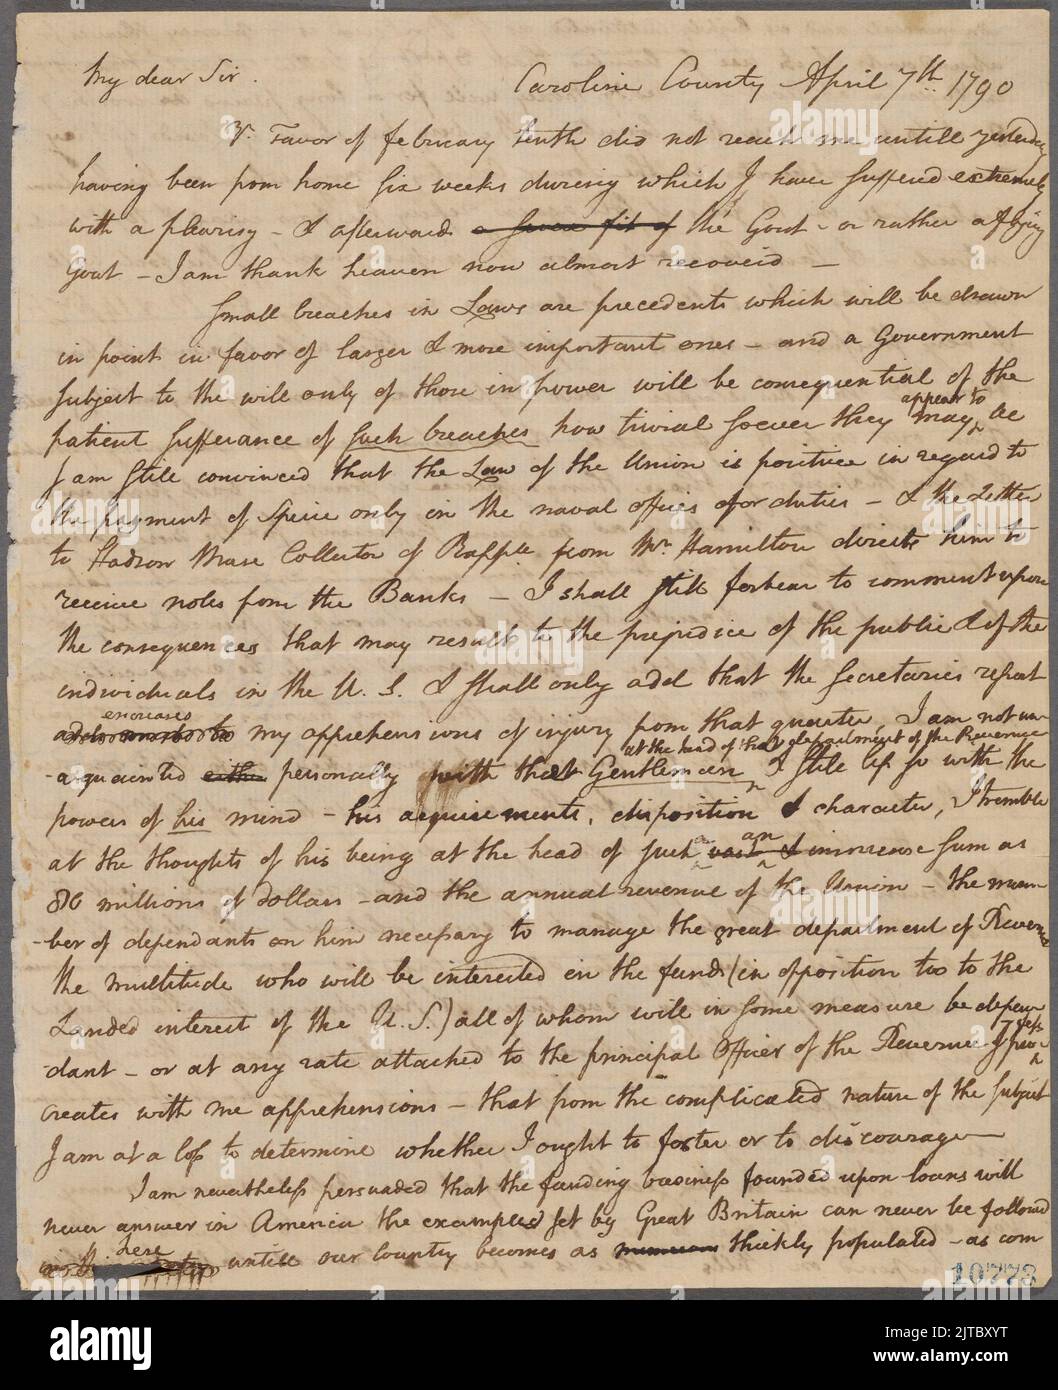 My dear Sir.
Caroline County April 7th 1790
Yr Favor of february tenth did not reach me untill yesterday
having been from home six weeks during which I have suffered extremely
with a pleurisy - & afterwards a severe fit of the Gout - or rather a flying
Gout - I am thank heaven now almost recoverd -
Small breaches in Laws are precedents which will be drawn
in point in favor of larger & more important ones - and a Government
subject to the will only of those in power will be consequential of the
appear to
patient sufferance of such breaches how trivial soever they may be
I am still convinced that the Law of the Union is positive in regard to
the payment of Specie only in the naval offices for duties - & the Letter
to Hudson Muse Collector of Rapph. from Mr. Hamilton directs him to
receive notes from the Banks - I shall still forbear to comment upon
the consequences that may result to the prejudice of the public & of the
individuals in the U. S. & shall only add that the Secretaries report
encreases
my apprehensions of injury from that quarter, I am not un-
at the head of that department of the Revenue
-acquainted either personally with that Gentleman & still less so with the
powers of his mind - his acquirements, disposition & character, I tremble
an
at the thoughts of his being at the head of such immense sum as
86 millions of dollars - and the annual revenue of the Union - the num
-ber of dependants on him necessary to manage the great department of Revenue
the multitude who will be interested in the funds (in opposition too to the
Landed interest of the U. S.) all of whom will in some measure be depen
dant - or at any rate attached to the principal Officer of the Revenue
I confess
creates with me apprehensions - that from the complicated nature of the subject
I am at a loss to determine whether I ought to foster or to discourage -
I am nevertheless persuaded that the funding business founded upon loans will
never answer in America the examples set by Great Britain can never be followed
here
untill our Country becomes as numerous thickly populated - as com
10773
alamy
Image ID: 2JTBXYT
www.alamy.com